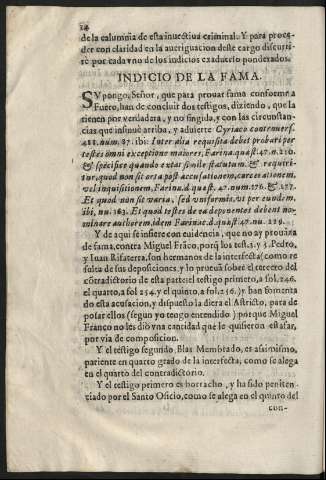 14
de la calumnia de esta inuectiua criminal. Y para proce-
der con claridad en la aueriguacion deste cargo discurri-
rè por cada vno de los indicios exaduerso ponderados.
INDICIO DE LA FAMA.
SVpongo, Señor, que para prouar fama conforme a
Fuero, han de concluir dos testigos, diziendo, que la
tienen por verdadera, y no fingida, y con las circunstan-
cias que insinuè arriba, y aduierte Cyriaco controuers.
488. num. 87. ibi: Inter alia requisita debet probari per
testes omni exceptione maiores, Farina. quæst. 47. n. 210.
& specifice quando extat simile statutum. & requiri-
tur, quod non sit orta post accusationem, carcerationem,
vel inquisitionem, Farin. d. quæst. 47. num. 176. & 177.
Et quod non sit varia, sed vniformis, vt per eundem.
ibi, nu. 163. Et quod testes de ea deponentes debent no-
minare authorem idem Farinac. d. quæst. 47. nu. 229.
Y de aqui se infiere con euidencia, que no ay prouãça
de fama, contra Miguel Frãco, porq̃ los test. 1. y 5. Pedro,
y Iuan Rifaterra, son hermanos de la interfecta (como re
sulta de sus deposiciones, y lo prueuã sobre el tercero del
contradictorio de esta parte el testigo primero, a fol. 246.
el quarto, a fol. 254. y el quinto, a fol. 256.) y han fomenta
do esta acusacion, y dispuesto la diera el Astricto, para de
posar ellos (segun yo tengo entendido) porque Miguel
Franco no les diò vna cantidad que le quisieron estafar,
por via de composicion.
Y el testigo segundo, Blas Membrado, es asimismo,
pariente en quarto grado de la interfecta, como se alega
en el quarto del contradictorio.
Y el testigo primero es borracho, y ha sido peniten-
ciado por el Santo Oficio, como se alega en el quinto del
con-